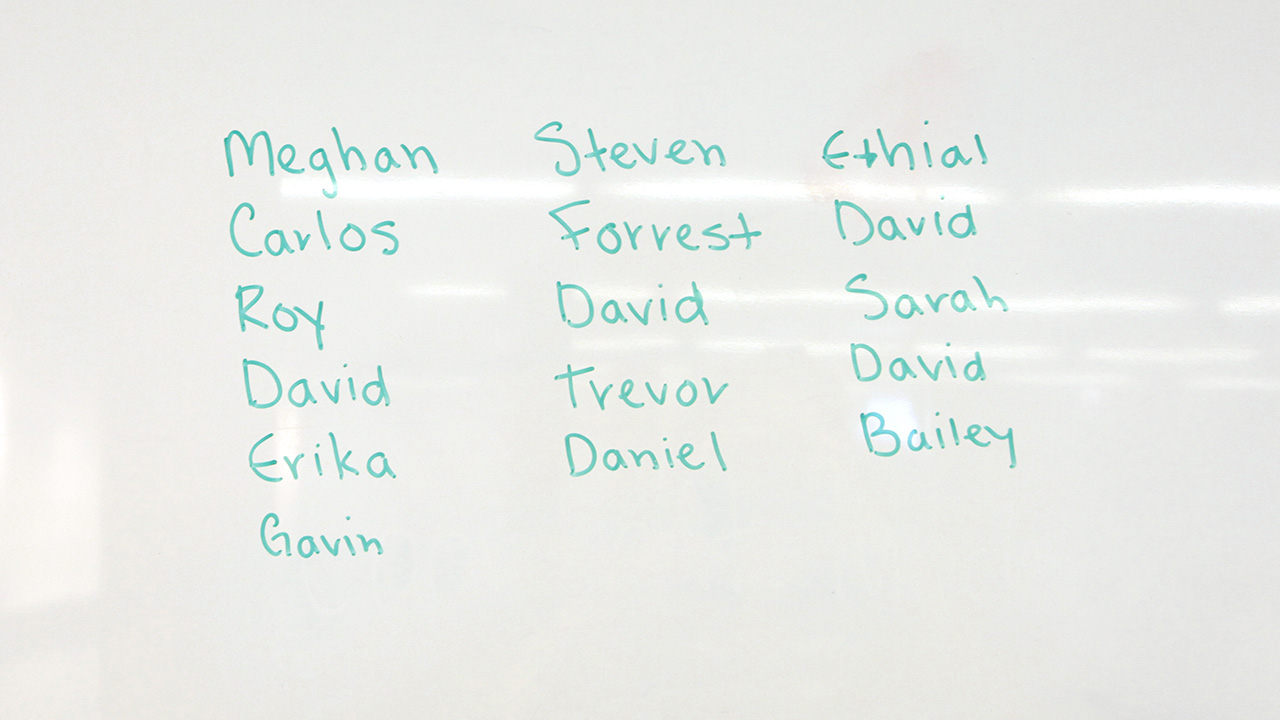 Meghan Steven Ethial
Carlos Forrest David
Roy David Sarah
David Trevor David
Erika Daniel Bailey
Gavin